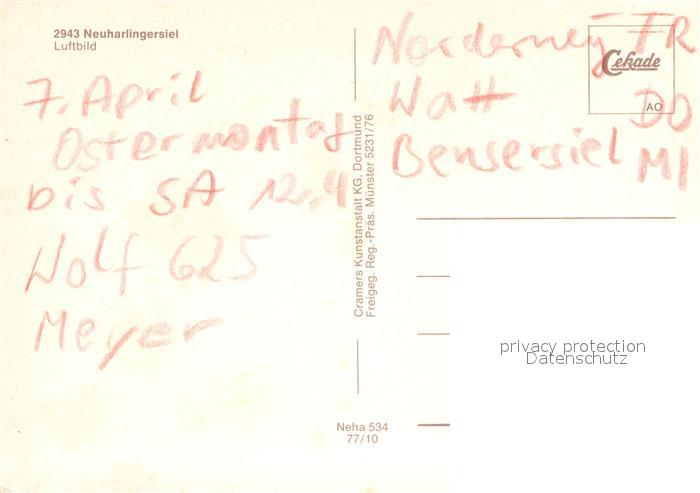 2943 Neuharlingersiel
Luftbild
7. April
Ostermontag
bis SA 12.4
Wolf 625
Meyer
Cramers Kunstanstalt KG, Dortmund
Freigeg. Reg.-Präs. Münster 5231/76
Neha 534
77/10
Norderney FR
Watt DO
Bensersiel MI
Cekade
AO
privacy protection
Datenschutz